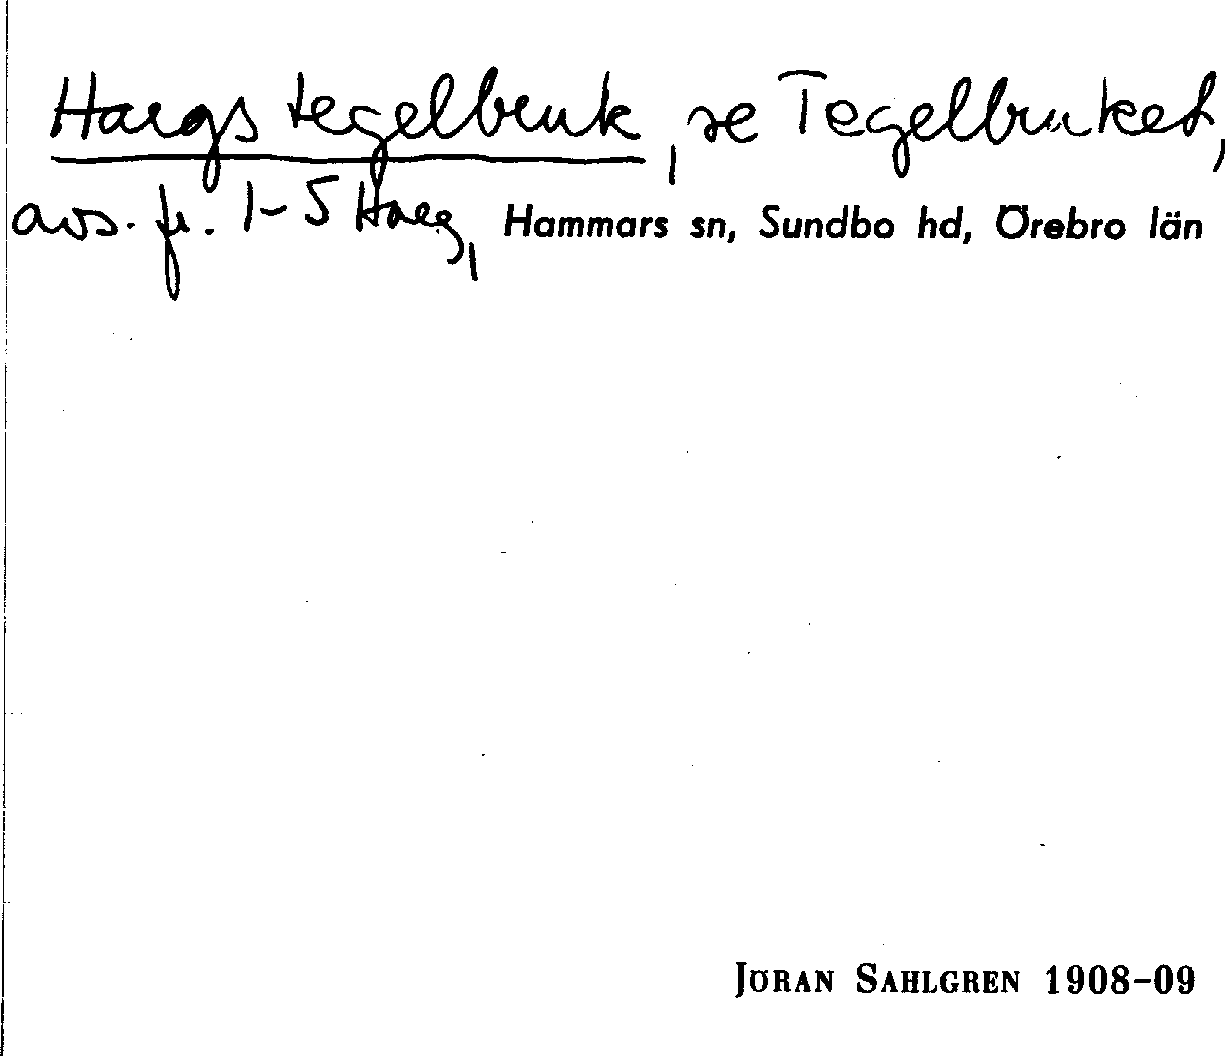 Hargs tegelbruk, se Tegelbruket,
avs. fr. 1-5 Harg, Hammars sn, Sundbo hd, Örebro län
JÖRAN SAHLGREN 1908-09